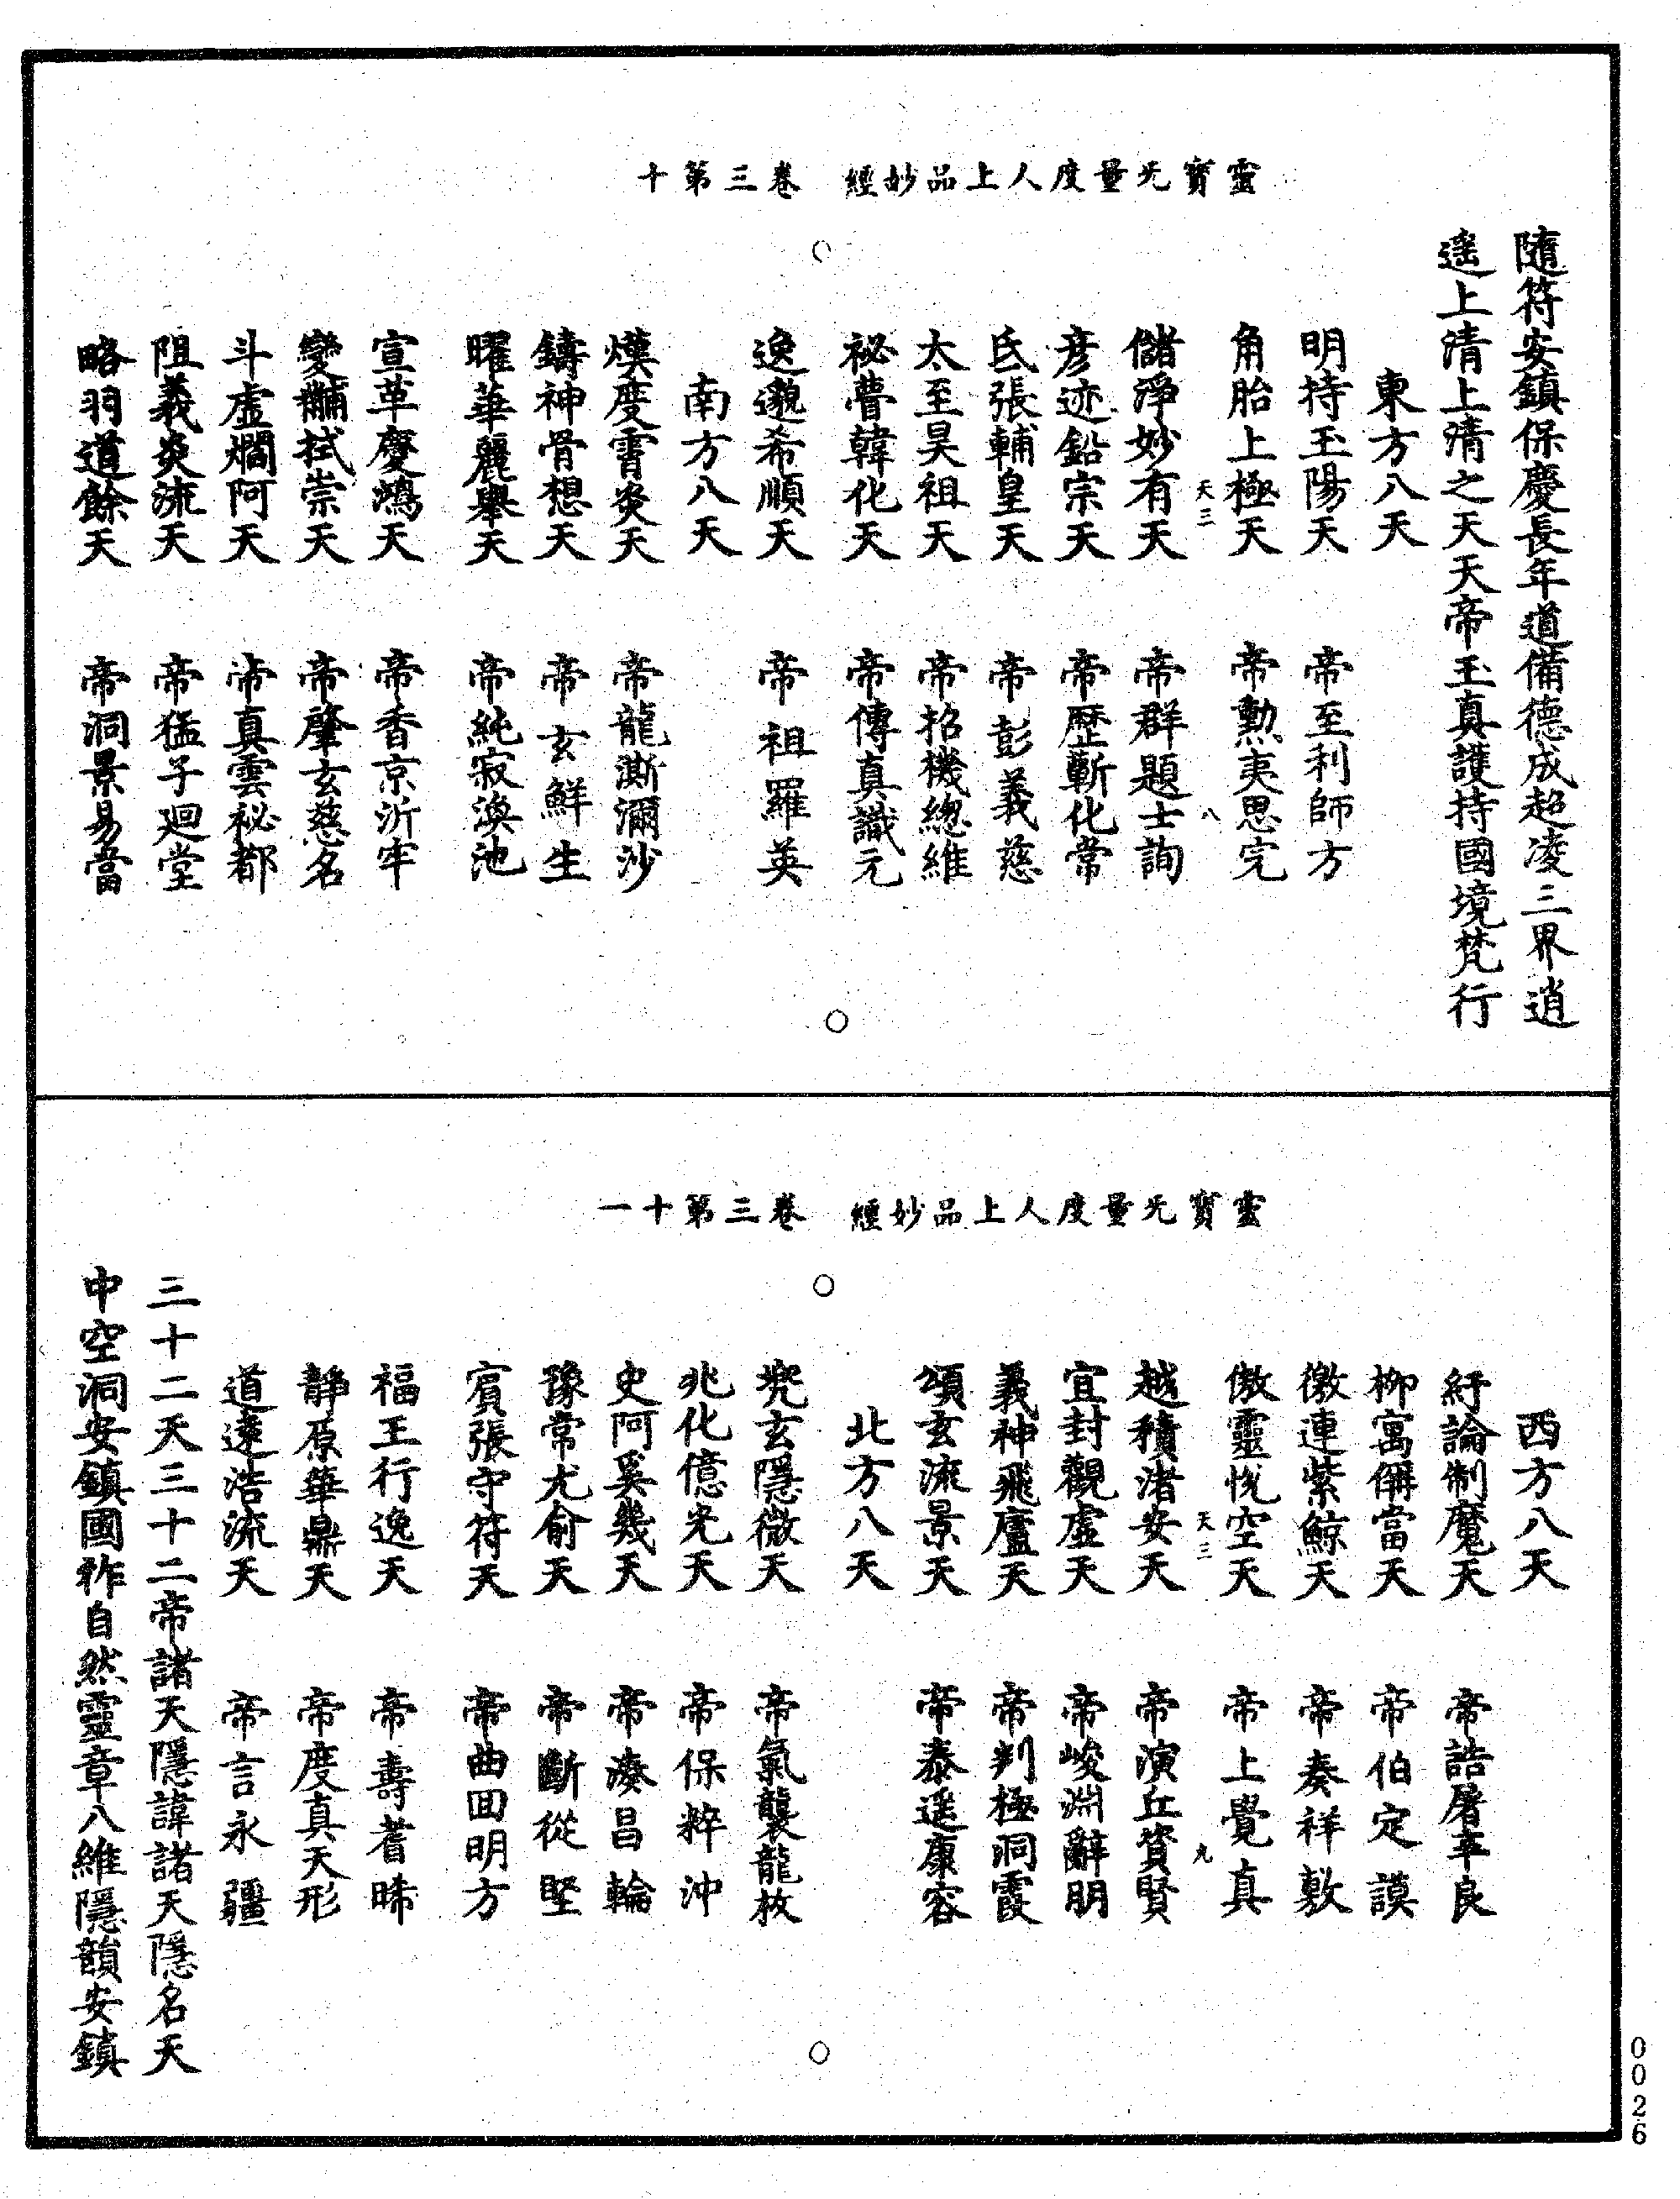 靈寶无量度人上品妙經　卷三第十
隨符安鎮保慶長年道備德成超凌三界逍
遥上清上清之天天帝玉真護持國境梵行
東方八天
明持玉陽天　帝至利師方
角胎上極天　帝勳夷思完
天三　八
儲淨妙有天　帝群題士詢
彦迹鉛宗天　帝歷斬化常
氐張輔皇天　帝彭義慈
太至昊祖天　帝招機總維
祕瞢韓化天　帝傳真識元
逸邈希順天　帝祖羅英
南方八天
熯度霄炎天　帝龍澌濔沙
鑄神骨想天　帝玄鮮生
曜華麗舉天　帝純寂渙池
宣革慶鴻天　帝香京沂牢
變黼拭崇天　帝肇玄慈名
斗虛爛阿天　帝真雲祕都
阻義炎流天　帝猛子廻堂
略羽道餘天　帝洞景易當
靈寶无量度人上品妙經　卷三第十一
西方八天
紆論制魔天　帝誥屠辛良
柳寓傋當天　帝伯定謨
徼連紫鯨天　帝奏祥敷
傲靈恍空天　帝上覺真
天三　九
越積渚安天　帝演丘賛賢
宜封觀虛天　帝峻淵辭明
義神飛廬天　帝判極洞霞
頌玄流景天　帝泰遥康容
北方八天
兠玄隱微天　帝氣襲龍枚
兆化億光天　帝保粹沖
史阿奚幾天　帝湊昌輪
豫常尤俞天　帝斷從堅
賓張守符天　帝曲回明方
福王行逸天　帝壽耆晞
靜原華鼎天　帝度真天形
道遠浩流天　帝言永疆
三十二天三十二帝諸天隱諱諸天隱名天
中空洞安鎮國祚自然靈章八維隱韻安鎮
0026